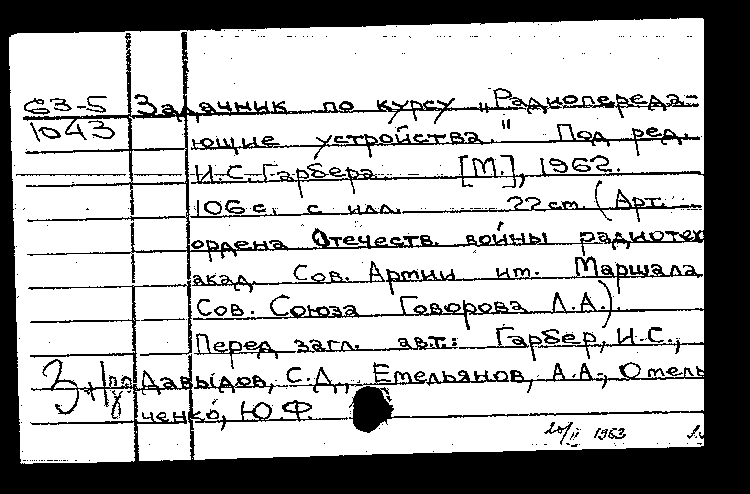 63-5 Задачник по курсу „Радиопереда-
1043 ющие устройства." Под ред.
И.С. Гарбера. [М.], 1962.
106 с. с илл. 22 см. (Арт.
ордена Отечеств. войны радиотех
акад. Сов. Армии им. Маршала
Сов. Союза Говорова Л.А.).
Перед загл. авт.: Гарбер, И.С.,
Давыдов, С.Д., Емельянов, А.А., Омель
ченко, Ю.Ф.
1963